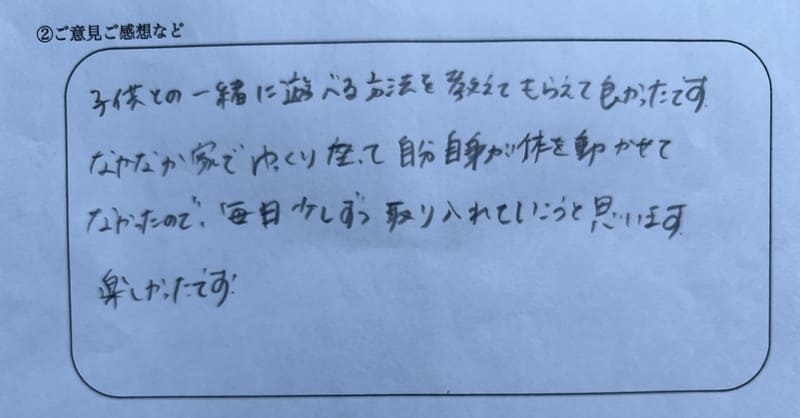 ②ご意見ご感想など
子供との一緒に遊べる方法を教えてもらえて良かったです
なかなか家でゆっくり座って自分自身が体を動かせて
なかったので、毎日少しずつ取り入れていこうと思います
楽しかったです!